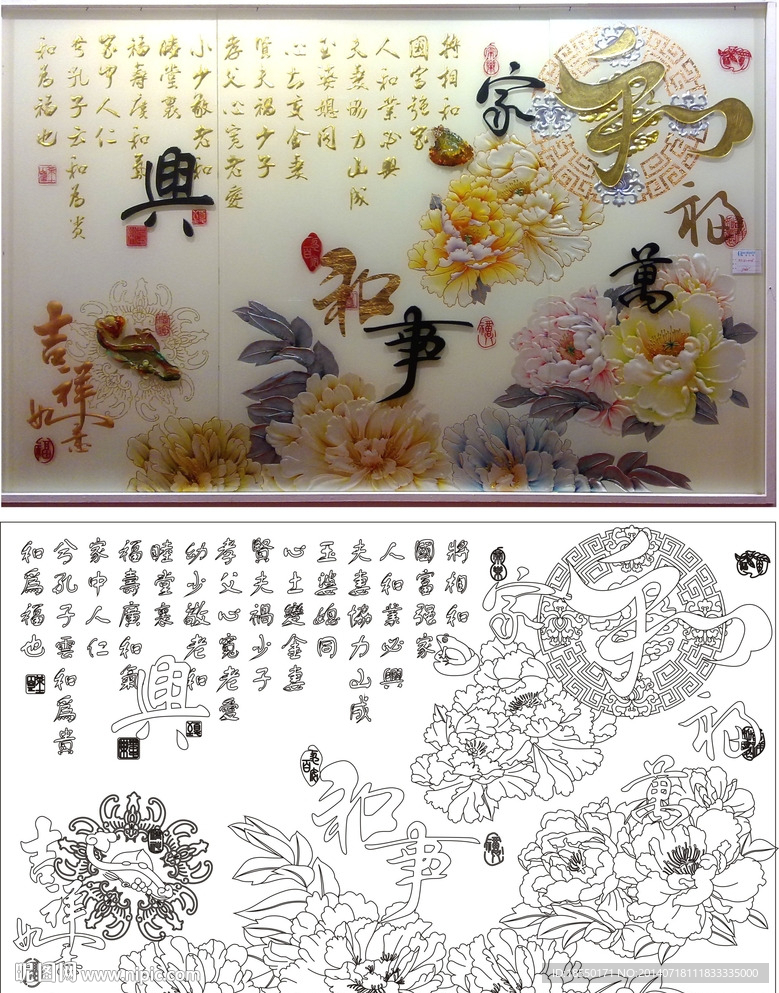 将相和
国富强家
人和業必興
夫妻協力山成
玉婆媳同
心土变金妻
賢夫禍少子
孝父心寬老愛
幼少敬老和
睦堂裏
福壽廣和氣
家中人仁
兮孔子云和為贵
和為福也
家
和
福
萬
事
興
和
吉祥如意
福
將相和
國富强家
人和業必興
夫妻協力山成
玉婆媳同
心土變金妻
賢夫禍少子
孝父心寬老愛
幼少敬老和
睦堂裏
福壽廣和氣
家中人仁
兮孔子雲和爲貴
和爲福也
家
和
福
萬
事
興
和
吉祥如
昵图网 www.nipic.com
ID:18550171 NO:20140718111833335000